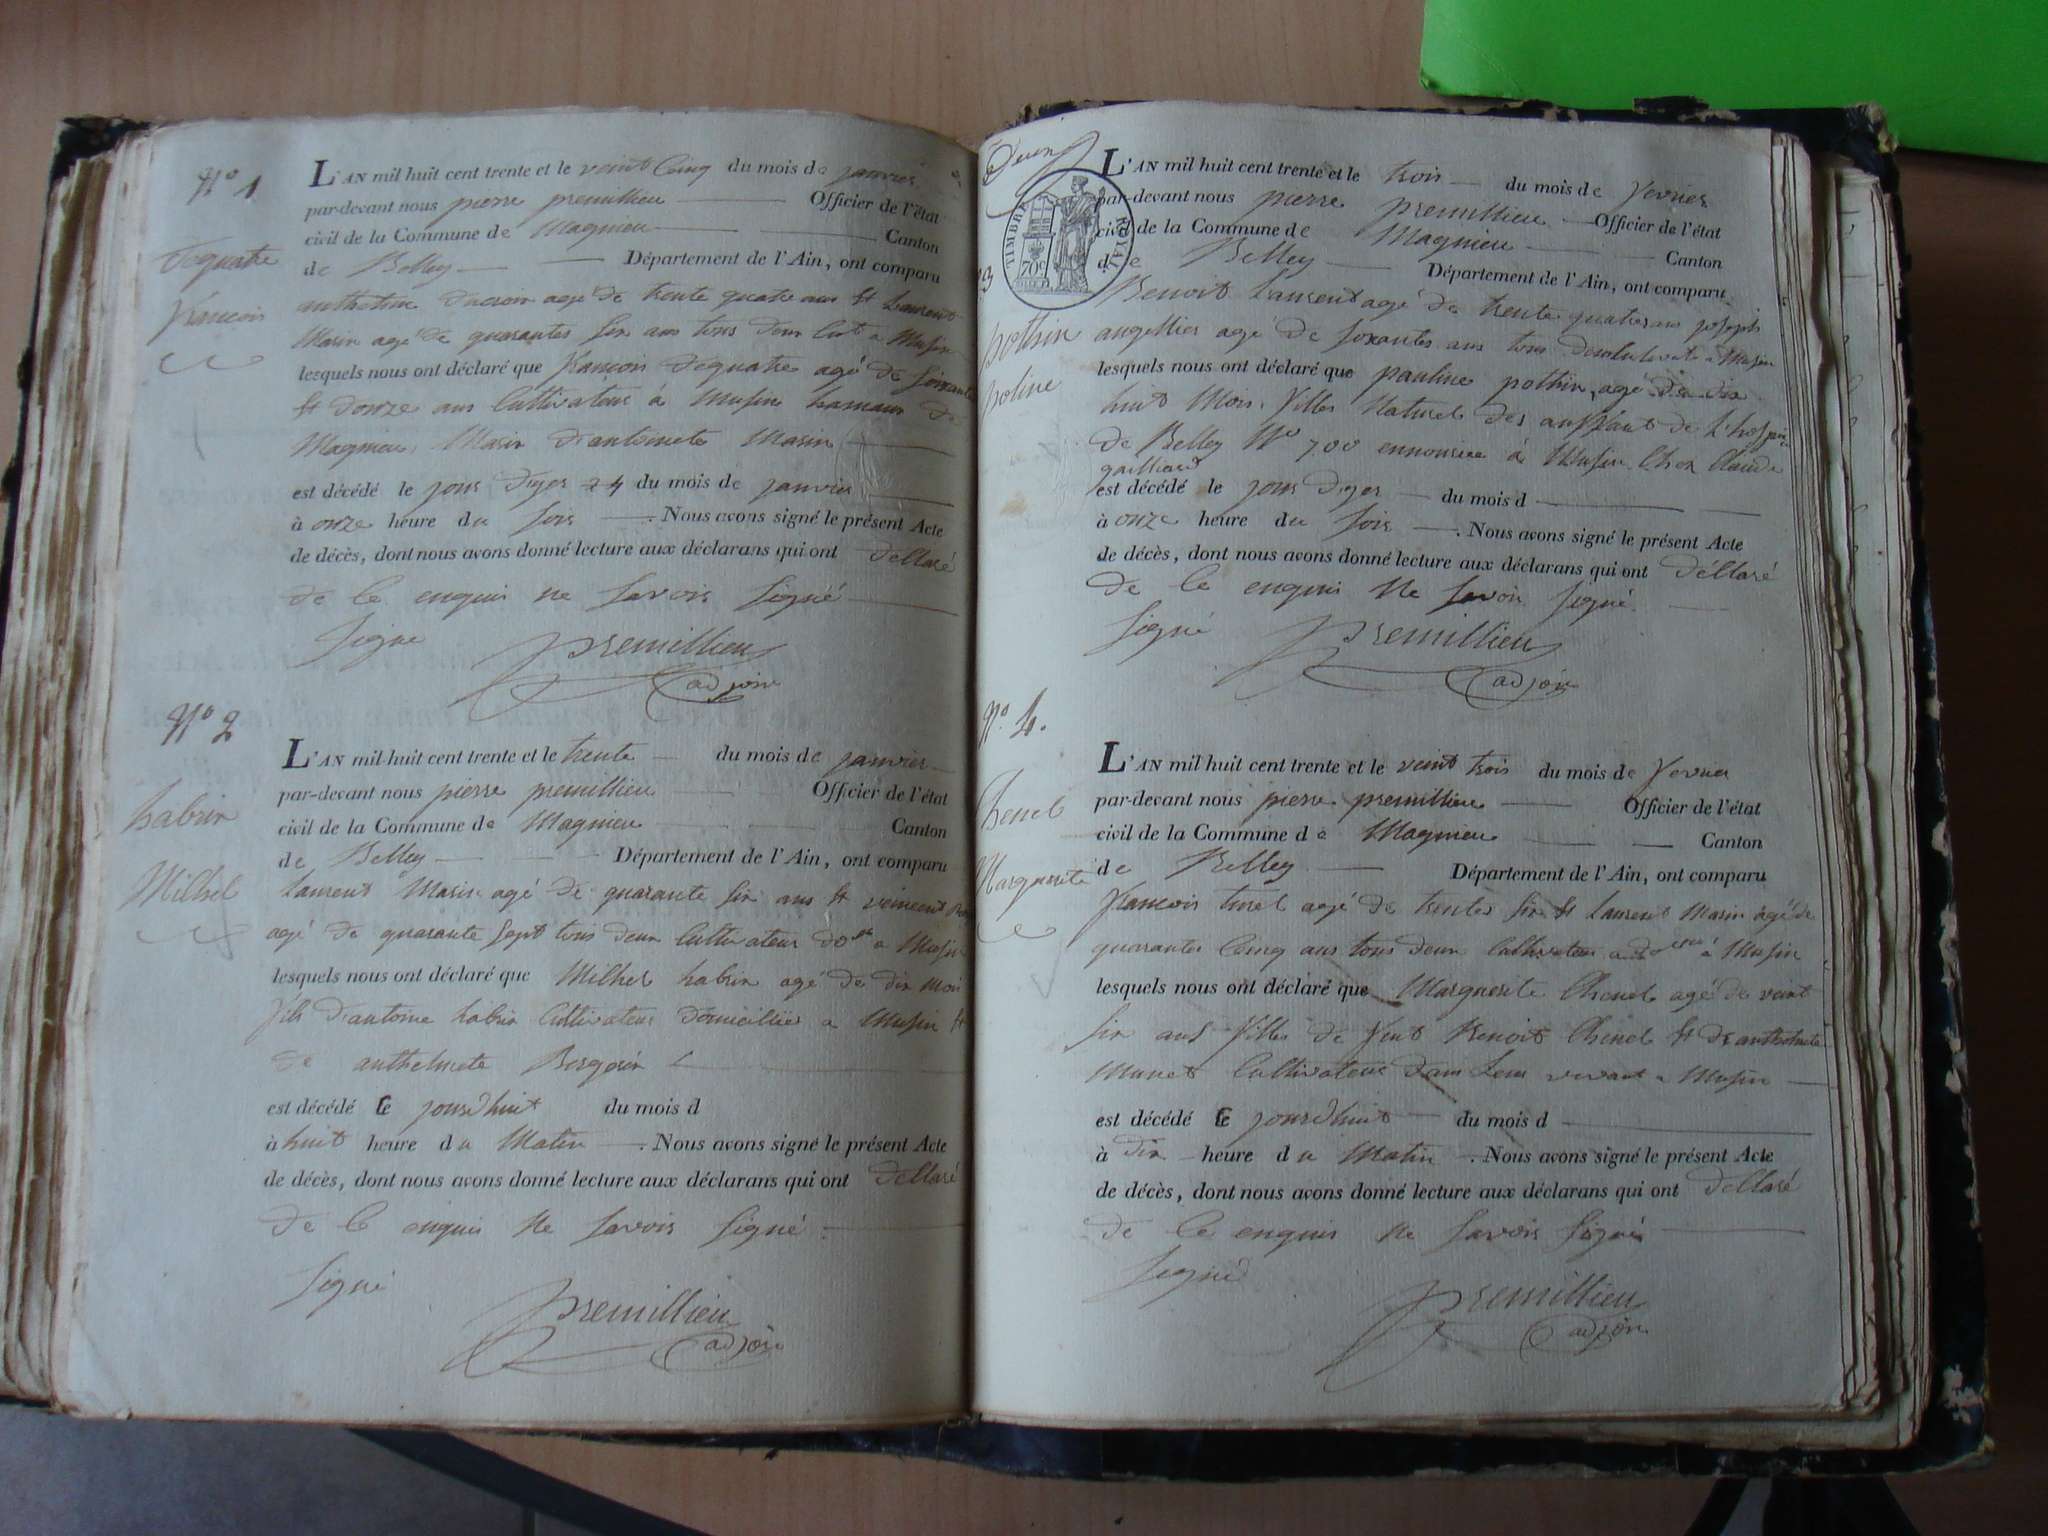 N° 1
L'AN mil huit cent trente et le veint Cinq du mois de janvier
par-devant nous pierre premillieu Officier de l'état
civil de la Commune de Magnieu Canton
de Belley Département de l'Ain, ont comparu
dequatre
francois
anthelme agé de trente quatre ans Et Laurent
Marin agé de quarantes six ans tous deux Cult a Musin
lesquels nous ont déclaré que francois dequatre agé de soixante
Et donze ans Cultivateur à Musin hamaux de
Magnieu Marin d'antoinete Marin
est décédé le jour dyer 24 du mois de janvier
à onze heure du soir . Nous avons signé le présent Acte
de décès, dont nous avons donné lecture aux déclarans qui ont dellaré
de Ce enquis ne savoir signé
signe premillieu
adjoin
N° 2
L'AN mil huit cent trente et le trente du mois de janvier
par-devant nous pierre premillieu Officier de l'état
civil de la Commune de Magnieu Canton
de Belley Département de l'Ain, ont comparu
habrin
Milhel
Laurent Marin agé de quarante six ans Et
agé de quarante sept tous deux Cultivateur a Musin
lesquels nous ont déclaré que Milhel habrin agé de dix Moi
fils d'antoine habrin Cultivateur domicillier a Musin Et
de anthelmete
est décédé Ce jourdhuit du mois d
à huit heure du Matin . Nous avons signé le présent Acte
de décès, dont nous avons donné lecture aux déclarans qui ont dellaré
de Ce enquis Ne savoir signé
signé premillieu
adjoin
TIMBRE ROYAL
70c
L'AN mil huit cent trente et le trois du mois de fevrier
par-devant nous pierre premillieu Officier de l'état
civil de la Commune de Magnieu Canton
de Belley Département de l'Ain, ont comparu
3
pothin
poline
Benoit Laurent agé de trente quatre ans joseph
angellier agé de soxantes ans tous a Musin
lesquels nous ont déclaré que pauline pothin, agé de dix
huit Mois filles Naturel des anffant de L'hospice
de Belley N° 700 a Musin Chez Claude
gailliard
est décédé le jour dyer du mois d
à onze heure du soir . Nous avons signé le présent Acte
de décès, dont nous avons donné lecture aux déclarans qui ont déllaré
de Ce enquis Ne savoir signé
signé premillieu
adjoin
N° 4.
L'AN mil huit cent trente et le veint trois du mois de fevrier
par-devant nous pierre premillieu Officier de l'état
civil de la Commune de Magnieu Canton
de Belley Département de l'Ain, ont comparu
Chenel
Marguerite
francois turel agé de trentes six Et Laurent Marin agé de
quarantes Cinq ans tous deux Cultivateur à Musin
lesquels nous ont déclaré que Marguerite Chenel agé de veint
six ans filles de feut Benoit Chenel Et de anthelmete
Munet Cultivateur dans Leur vivant a Musin
est décédé Ce jourdhuit du mois d
à dix heure du Matin . Nous avons signé le présent Acte
de décès, dont nous avons donné lecture aux déclarans qui ont dellaré
de Ce enquis Ne savoir signé
signé premillieu
adjoin